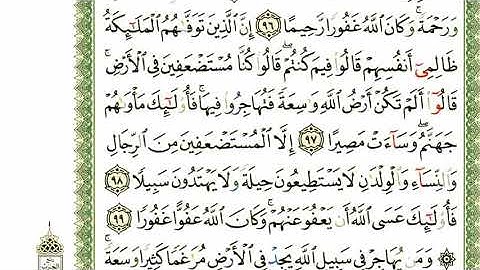 وَرَحْمَةً ۚ وَكَانَ ٱللَّهُ غَفُورًا رَّحِيمًا ٩٦ إِنَّ ٱلَّذِينَ تَوَفَّىٰهُمُ ٱلْمَلَـٰٓئِكَةُ
ظَالِمِىٓ أَنفُسِهِمْ قَالُوا۟ فِيمَ كُنتُمْ ۖ قَالُوا۟ كُنَّا مُسْتَضْعَفِينَ فِى ٱلْأَرْضِ ۚ
قَالُوٓا۟ أَلَمْ تَكُنْ أَرْضُ ٱللَّهِ وَٰسِعَةً فَتُهَاجِرُوا۟ فِيهَا ۚ فَأُو۟لَـٰٓئِكَ مَأْوَىٰهُمْ
جَهَنَّمُ ۖ وَسَآءَتْ مَصِيرًا ٩٧ إِلَّا ٱلْمُسْتَضْعَفِينَ مِنَ ٱلرِّجَالِ
وَٱلنِّسَآءِ وَٱلْوِلْدَٰنِ لَا يَسْتَطِيعُونَ حِيلَةً وَلَا يَهْتَدُونَ سَبِيلًا ٩٨
فَأُو۟لَـٰٓئِكَ عَسَى ٱللَّهُ أَن يَعْفُوَ عَنْهُمْ ۚ وَكَانَ ٱللَّهُ عَفُوًّا غَفُورًا ٩٩
۞ وَمَن يُهَاجِرْ فِى سَبِيلِ ٱللَّهِ يَجِدْ فِى ٱلْأَرْضِ مُرَٰغَمًا كَثِيرًا وَسَعَةً ۚ